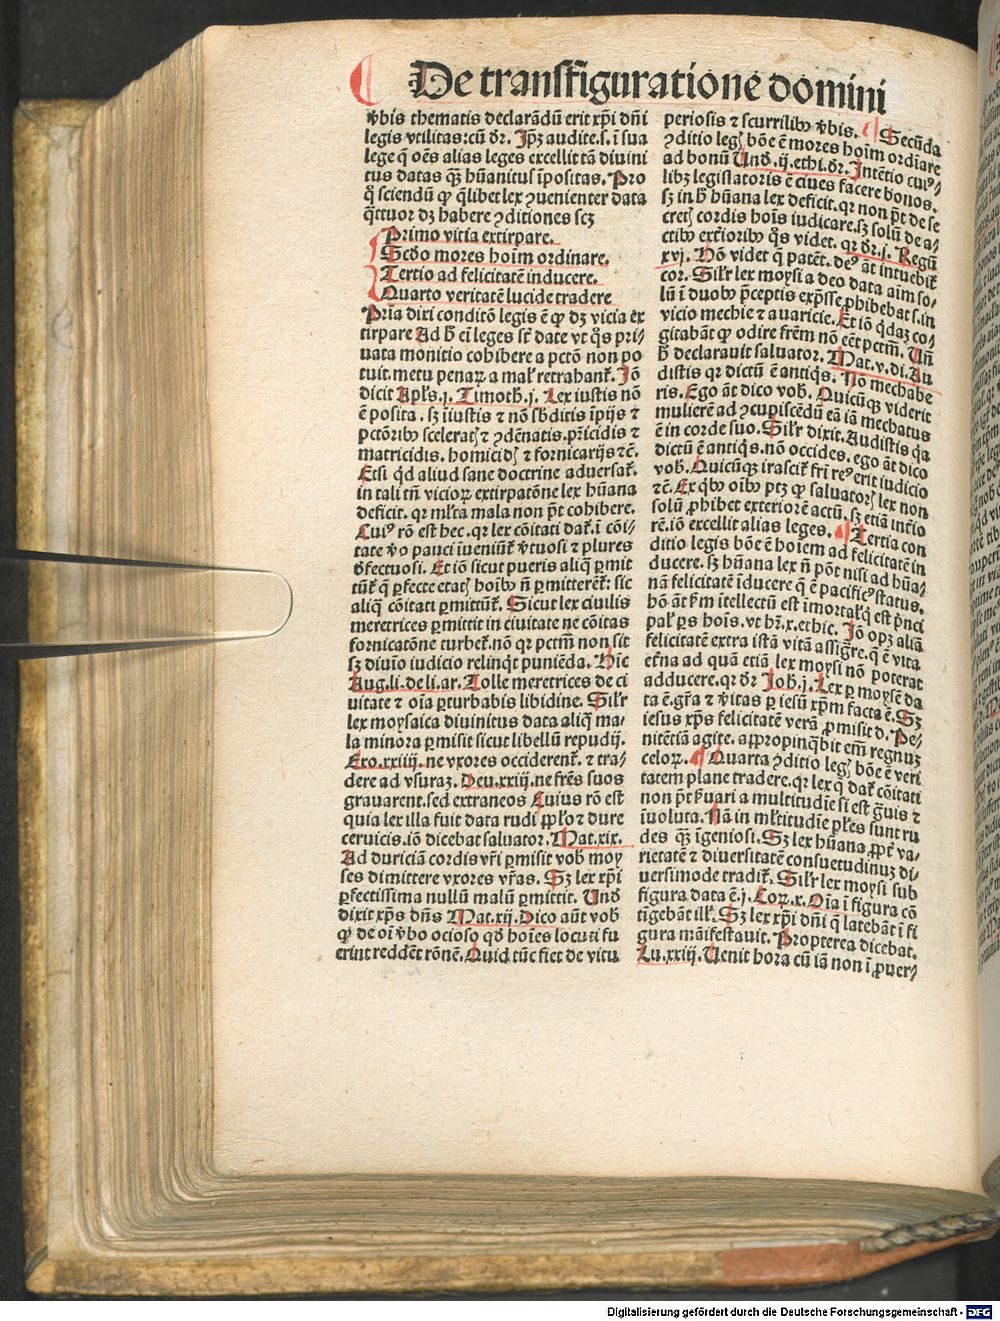 De transfiguratione domini
v̄bis thematis declarādū erit xp̄i dn̄i
legis vtilitas: cū dr̄. Ip̄ꝫ audite. s. ī sua
lege q̄ oēs alias leges excellit tā diuini
tus datas qꝫ hūanitus īpositas. Pro
q̄ sciendū ꝙ q̄libet lex ꝯuenienter data
q̄ttuor dꝫ habere ꝯditiones scꝫ
Primo vitia extirpare.
Scd̄o mores hoīm ordinare.
Tertio ad felicitatē inducere.
Quarto veritatē lucide tradere
Pria dixi conditō legis ē ꝙ dꝫ vicia ex
tirpare Ad h̄ ei leges st̄ date vt q̄s pri-
uata monitio cohibere a pctō non po
tuit. metu penaꝝ a mal' retrahant̄. Iō
dicit Apl's. j. Timoth. j. Lex iustis nō
ē posita. sꝫ iīustis ⁊ nō sb̄ditis īpijs ⁊
pctōribꝰ sceleratꝭ ⁊ ꝯdēnatis. pr̄icidis ⁊
matricidis. homicidꝭ ⁊ fornicarijs ⁊c̄.
Etsi q̄d aliud sane doctrine aduersat̄.
in tali tn̄ vicioꝝ extirpatōne lex hūana
deficit. qr ml'ta mala non pn̄t cohibere.
Cuiꝰ rō est hec. qr lex cōitati dat̄. ī cōi-
tate v̄o pauci īueniūt̄ v̄tuosi ⁊ plures
d̄fectuosi. Et iō sicut pueris aliq̄ ꝑmit
tūt̄ q̄ ꝑfecte etatꝭ hoībꝰ n̄ ꝑmitterēt̄: sic
aliq̄ cōitati ꝑmittūt̄. Sicut lex ciuilis
meretrices ꝑmittit in ciuitate ne cōitas
fornicatōne turbet̄. nō qr pctm̄ non sit
sꝫ diuīo iudicio relinq̄t puniēda. Hīc
Aug. li. de li. ar. Tolle meretrices de ci
uitate ⁊ oīa ꝑturbabis libidine. Sil'r
lex moysaica diuinitus data aliq̄ ma-
la minora ꝑmisit sicut libellū repudij.
Exo. xxiiij. ne vxores occiderent̄. ⁊ tra-
dere ad vsuraꝫ. Deu. xxiij. ne frēs suos
grauarent. sed extraneos Cuius rō est
quia lex illa fuit data rudi ꝓplo ⁊ dure
ceruicis. iō dicebat saluator. Mat. xix.
Ad duriciā cordis vr̄i ꝑmisit vob̄ moy
ses dimittere vxores vr̄as. Sꝫ lex xp̄i
ꝑfectissima nullū malū ꝑmittit. Und̄
dixit xp̄s dn̄s Mat. xij. Dico aūt vob̄
ꝙ de oī v̄bo ocioso qd̄ hoīes locuti fu
erint reddēt rōnē. Quid tūc fiet de vitu
periosis ⁊ scurrilibꝰ v̄bis. Secūda
ꝯditio legꝭ bōe ē mores hoīm ordīare
ad bonū Und̄. ij. ethi. dr̄. Intētio cuiꝰ-
libꝫ legislatoris ē ciues facere bonos.
sꝫ in h̄ hūana lex deficit. qr non pōt de se
cretꝭ cordis hoīs iudicare. sꝫ solū de a-
ctibꝰ exteriōribꝰ q̄s videt. qr dr̄. j. Regū
xvj. Hō videt q̄ patēt. deꝰ āt intuebit̄
cor. Sil'r lex moysi a deo data aim so-
lū ī duobꝰ p̄ceptis exp̄sse ꝓhibebat s. in
vicio mechie ⁊ auaricie. Et iō q̄daꝫ co-
gitabāt ꝙ odire frēm nō eēt pctm̄. Un̄
h̄ declarauit saluator. Mat. v. di. Au
distis qr dictū ē antiq̄s. Nō mechabe
ris. Ego āt dico vob̄. Quicūqꝫ viderit
mulierē ad ꝯcupiscēdū eā iā mechatus
ē in corde suo. Sil'r dixit. Audistis q̄a
dictū ē antiq̄s. nō occides. ego āt dico
vob̄. Quicūqꝫ irascit̄ fr̄i reꝰ erit iudicio
⁊c̄. Ex q̄bꝰ oībꝰ ptꝫ ꝙ saluatorꝭ lex non
solū ꝓhibet exteriorē actū. sꝫ etiā intīo
rē. iō excellit alias leges. Tertia con
ditio legis bōe ē hoīem ad felicitatē in
ducere. sꝫ hūana lex n̄ pōt nisi ad hūa-
nā felicitatē īducere q̄ ē pacificꝰ status.
hō āt sm̄ itellectū est īmortal' q̄ est p̄nci
pal' ꝑs hoīs. vt hr̄. x. ethic. Iō opꝫ aliā
felicitatē extra istā vitā assigr̄e. q̄ ē vita
etn̄a ad quā etiā lex moysi nō poterat
adducere. qr dr̄ Joh. j. Lex ꝑ moysē da
ta ē. gr̄a ⁊ v̄itas ꝑ iesū xp̄m facta ē. Sꝫ
iesus xp̄s felicitatē verā ꝓmisit d. Pe-
nitētiā agite. appropinq̄bit em̄ regnuꝫ
celoꝝ. Quarta ꝯditio legꝭ bōe ē veri
tatem plane tradere. qr lex q̄ dat̄ cōitati
non pōt ẜuari a multitudīe si est gᷓuis ⁊
īuoluta. Nā in ml'titudīe ples sunt ru
des qꝫ īgeniosi. Sꝫ lex hūana ꝓpt̄ va-
rietatē ⁊ diuersitatē consuetudinuꝫ di-
uersimode tradit̄. Sil'r lex moysi sub
figura data ē. j. Coꝝ. x. Oīa ī figura cō
tigebāt ill'. Sꝫ lex xp̄i dn̄i q̄ latebāt ī fi
gura māifestauit. Propterea dicebat.
Lu. xxiij. Uenit hora cū iā non ī ꝓuer-
Digitalisierung gefördert durch die Deutsche Forschungsgemeinschaft - DFG